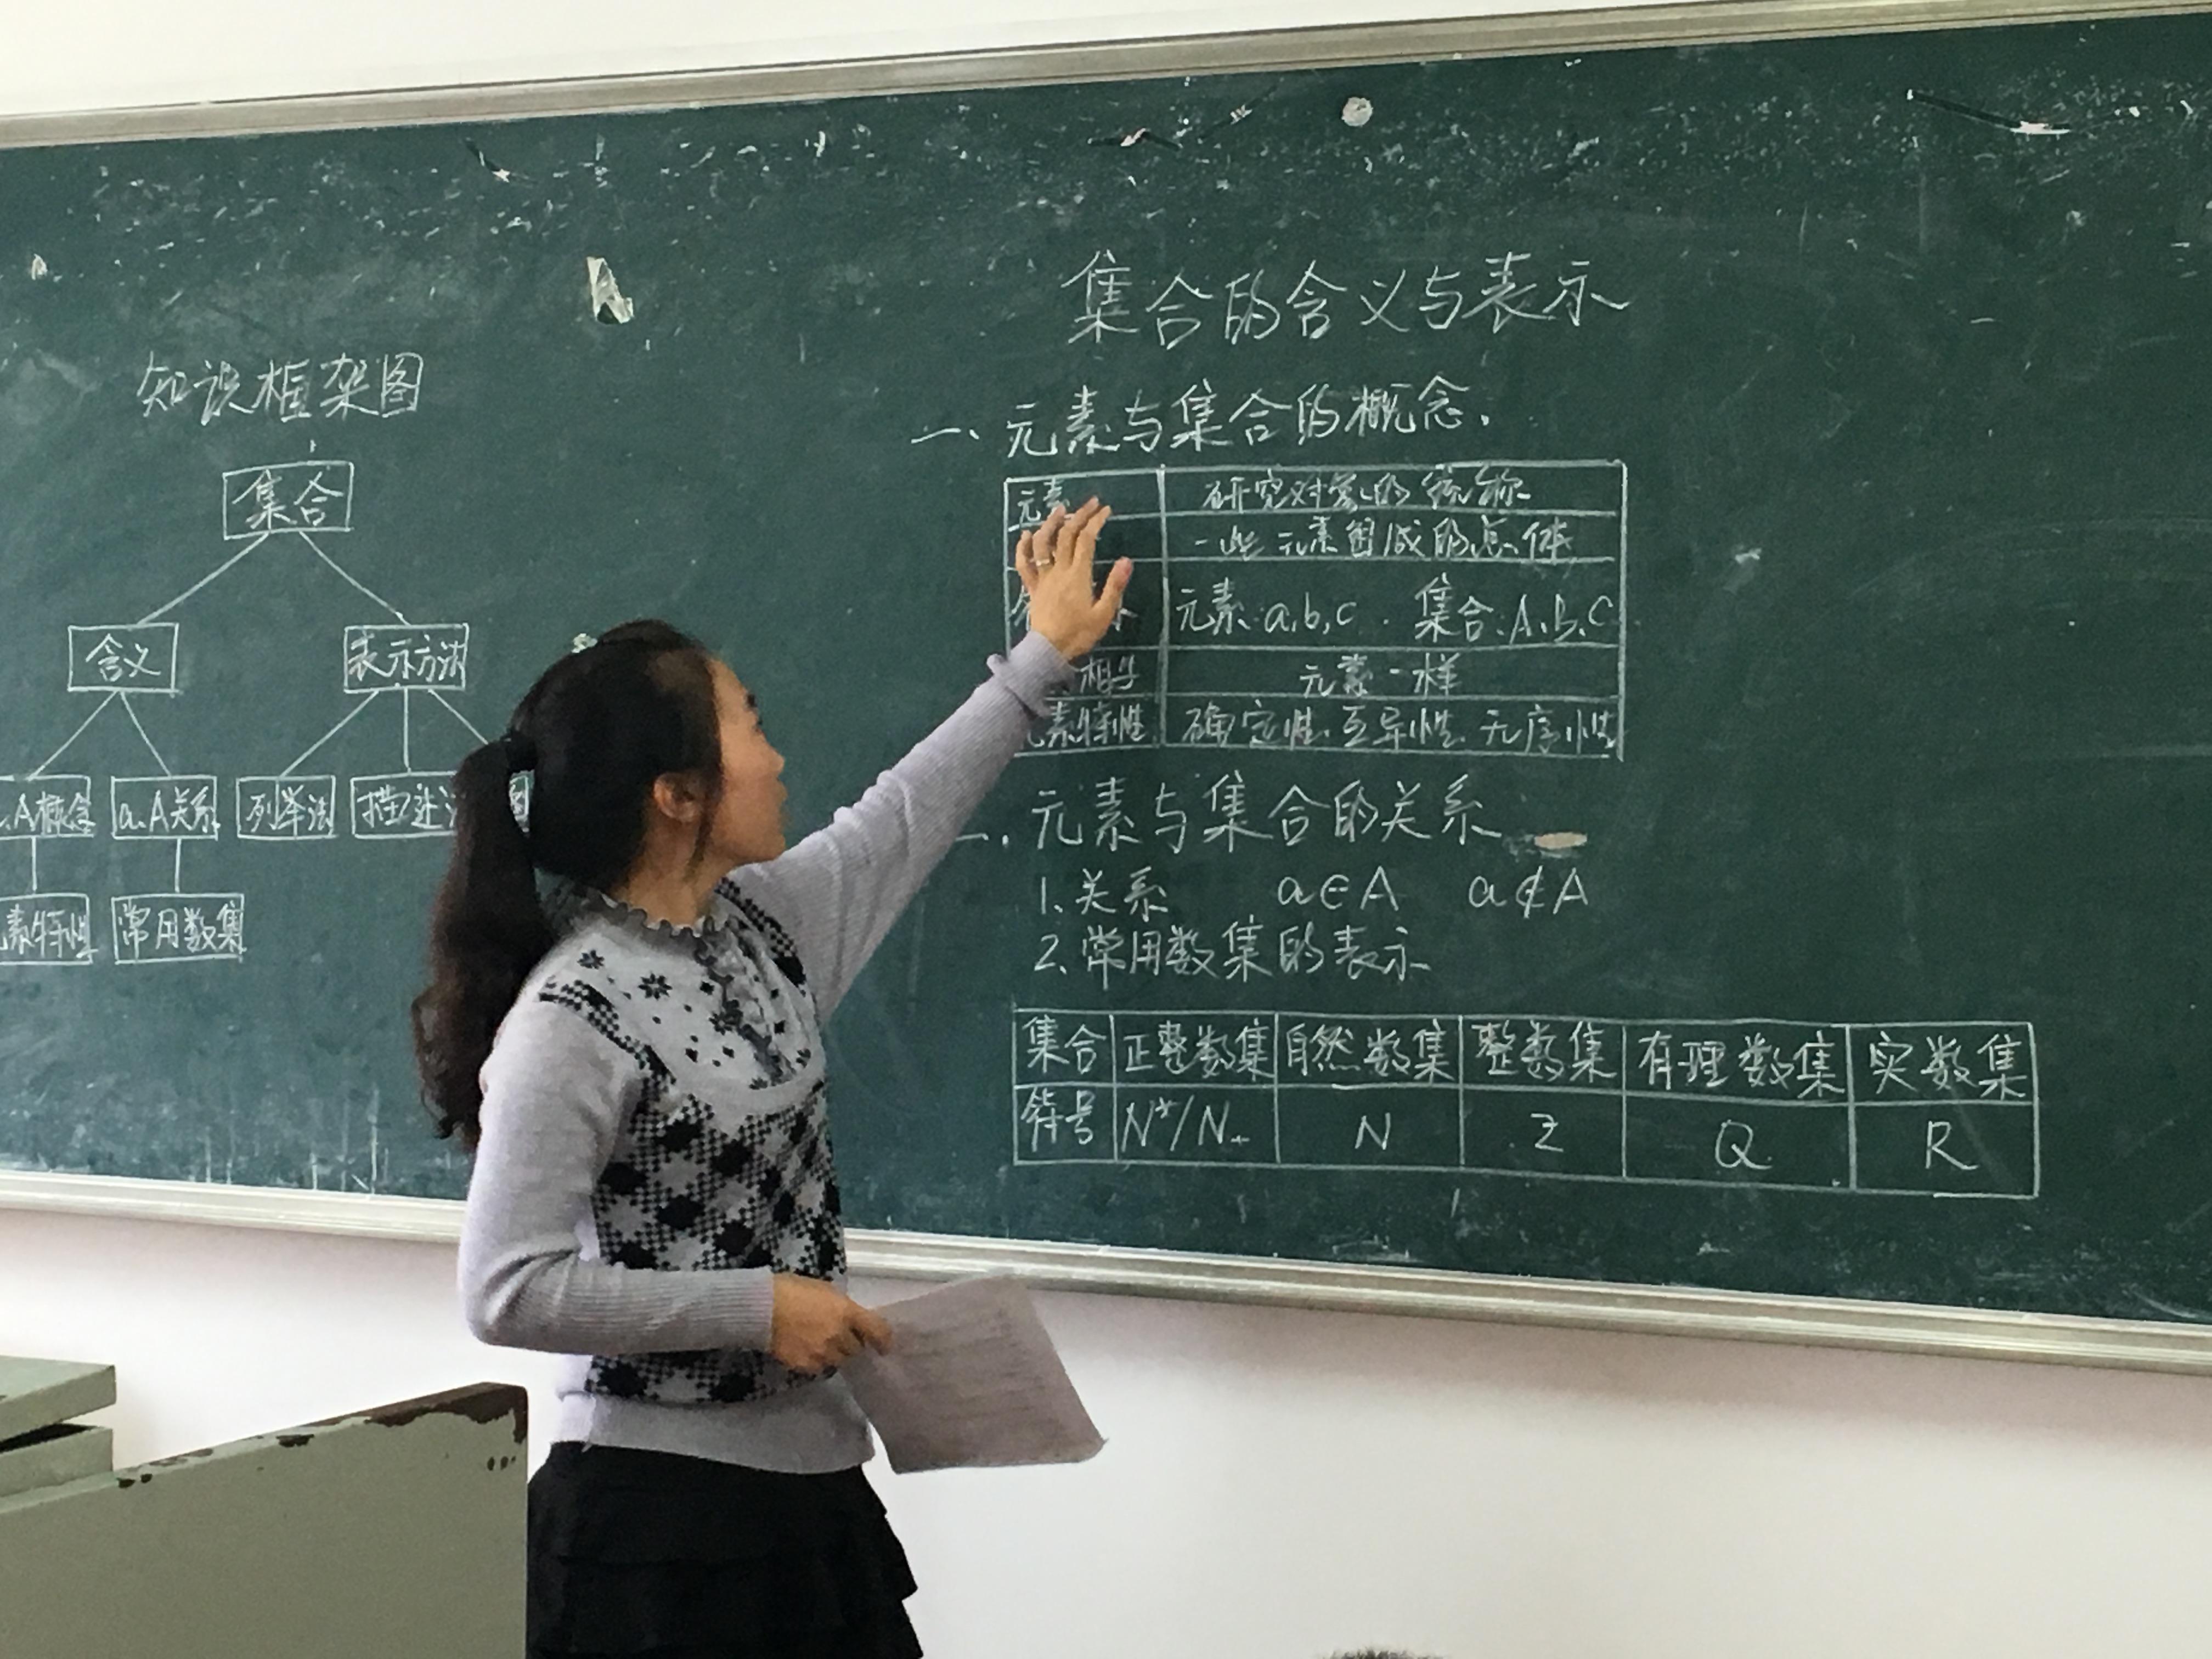 知识框架图
集合
含义 表示方法
A概念 a.A关系 列举法 描述
素特性 常用数集
集合的含义与表示
一、元素与集合的概念.
元素 研究对象的统称
一些元素组成的总体
元素:a,b,c. 集合:A,B,C
相等 元素一样
素特性 确定性 互异性 无序性
元素与集合的关系
1.关系 a∈A a∉A
2.常用数集的表示
集合 正整数集 自然数集 整数集 有理数集 实数集
符号 N*/N+ N Z Q R